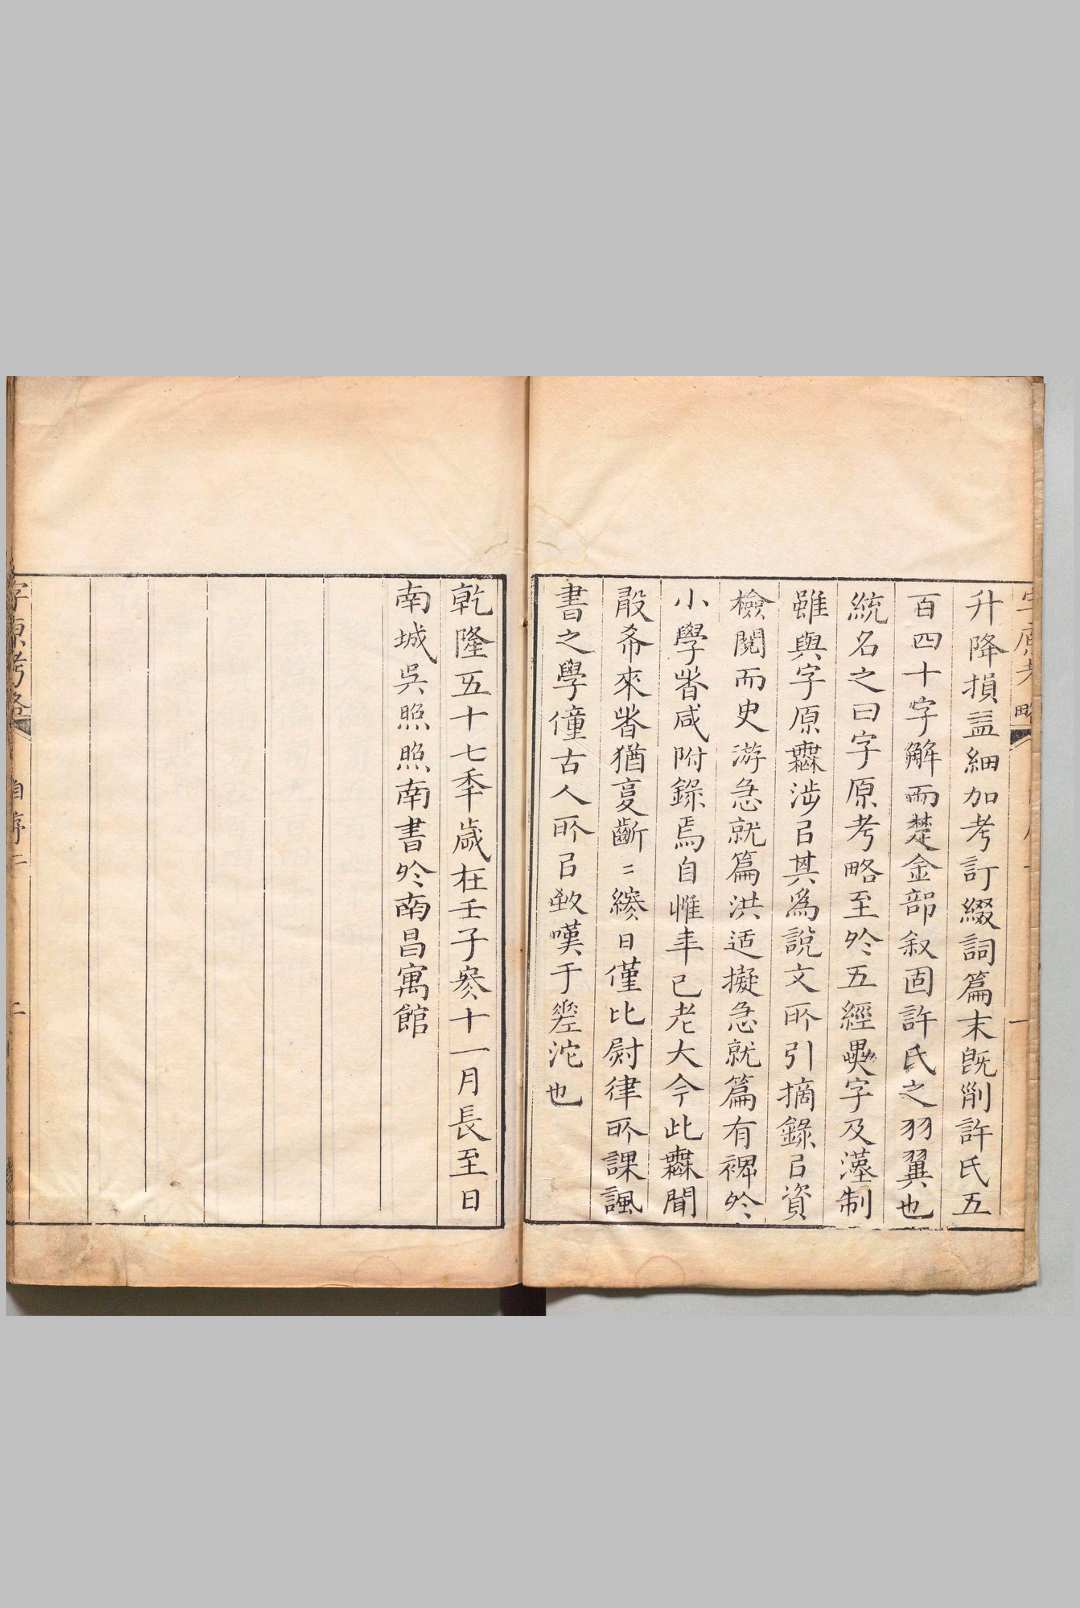 升降損益細加考訂綴詞篇末旣削許氏五
百四十字解而楚金部叙固許氏之羽翼也
統名之曰字原考略至於五經異字及漢制
雖與字原無涉㠯其爲說文所引摘錄㠯資
檢閱而史游急就篇洪适擬急就篇有裨於
小學者咸附錄焉自惟年已老大今此無聞
殷希來者猶夏斷二縿日僅比尉律所課諷
書之學僮古人所㠯致嘆于蹉沱也
乾隆五十七秊歲在壬子冬十一月長至日
南城吳照照南書於南昌寓館
字原考略
自序二
二